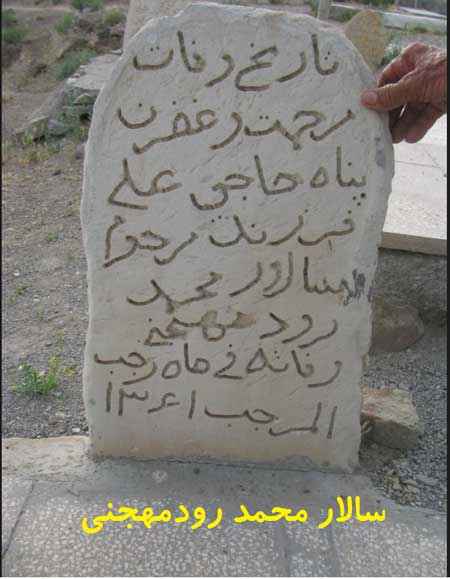 تاریخ وفات
مرحمت و غفرن
پناه حاجی علی
فرزند مرحوم
سالار محمد
رود مهجنی
وفاته فی ماه رجب
المرجب ۱۳۴۱
سالار محمد رودمهجنی